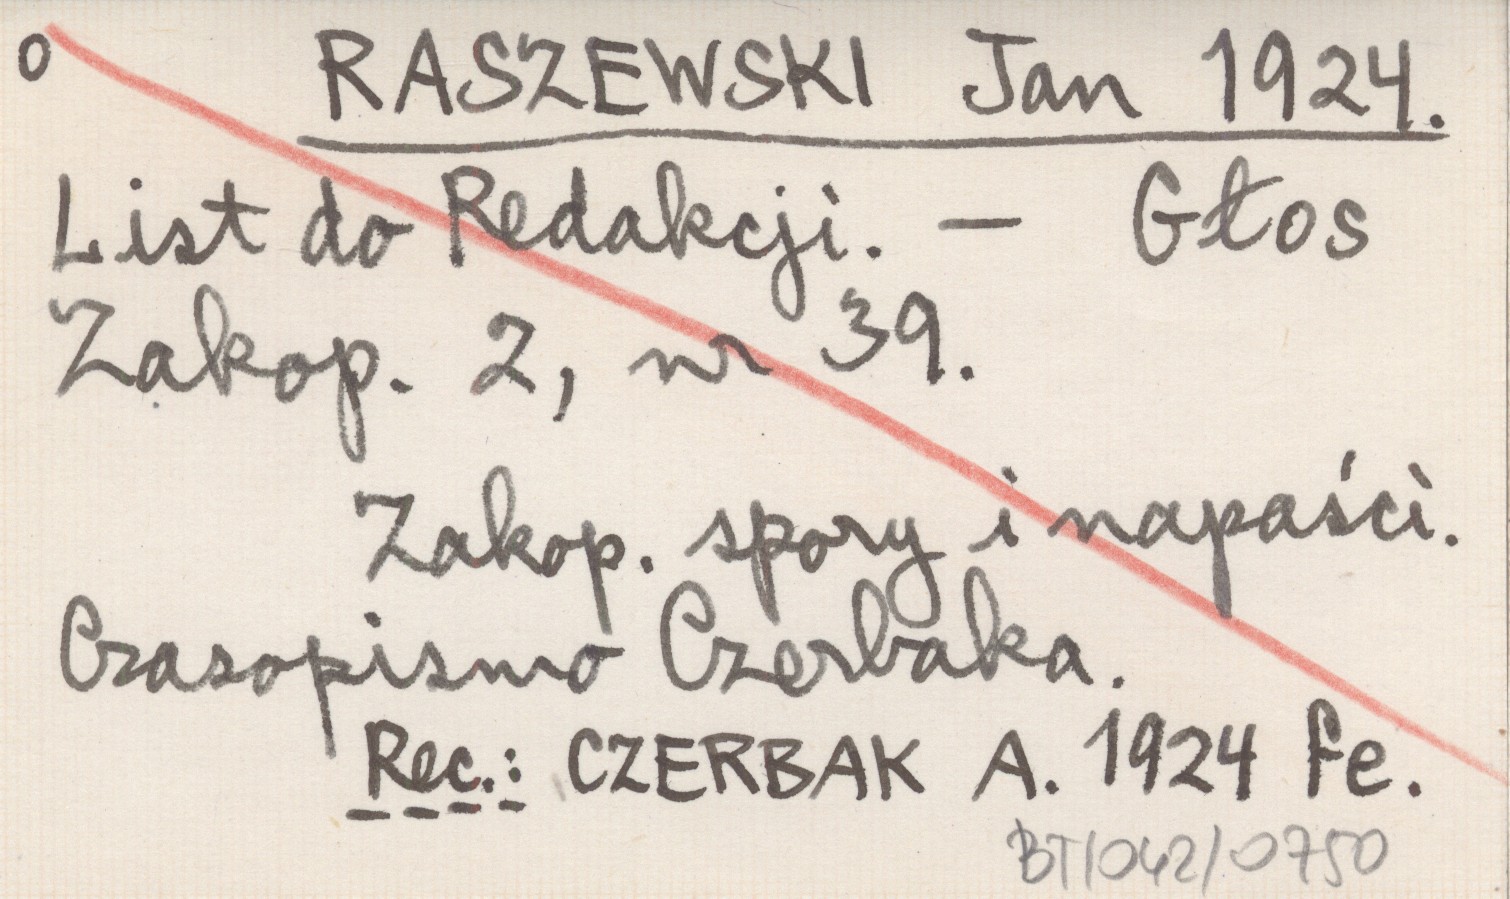 o RASZEWSKI Jan 1924.
List do Redakcji. — Głos
Zakop. 2, nr 39.
Zakop. spory i napaści.
Czasopismo Czerbaka.
Rec.: CZERBAK A. 1924 fe.
BT/042/0750